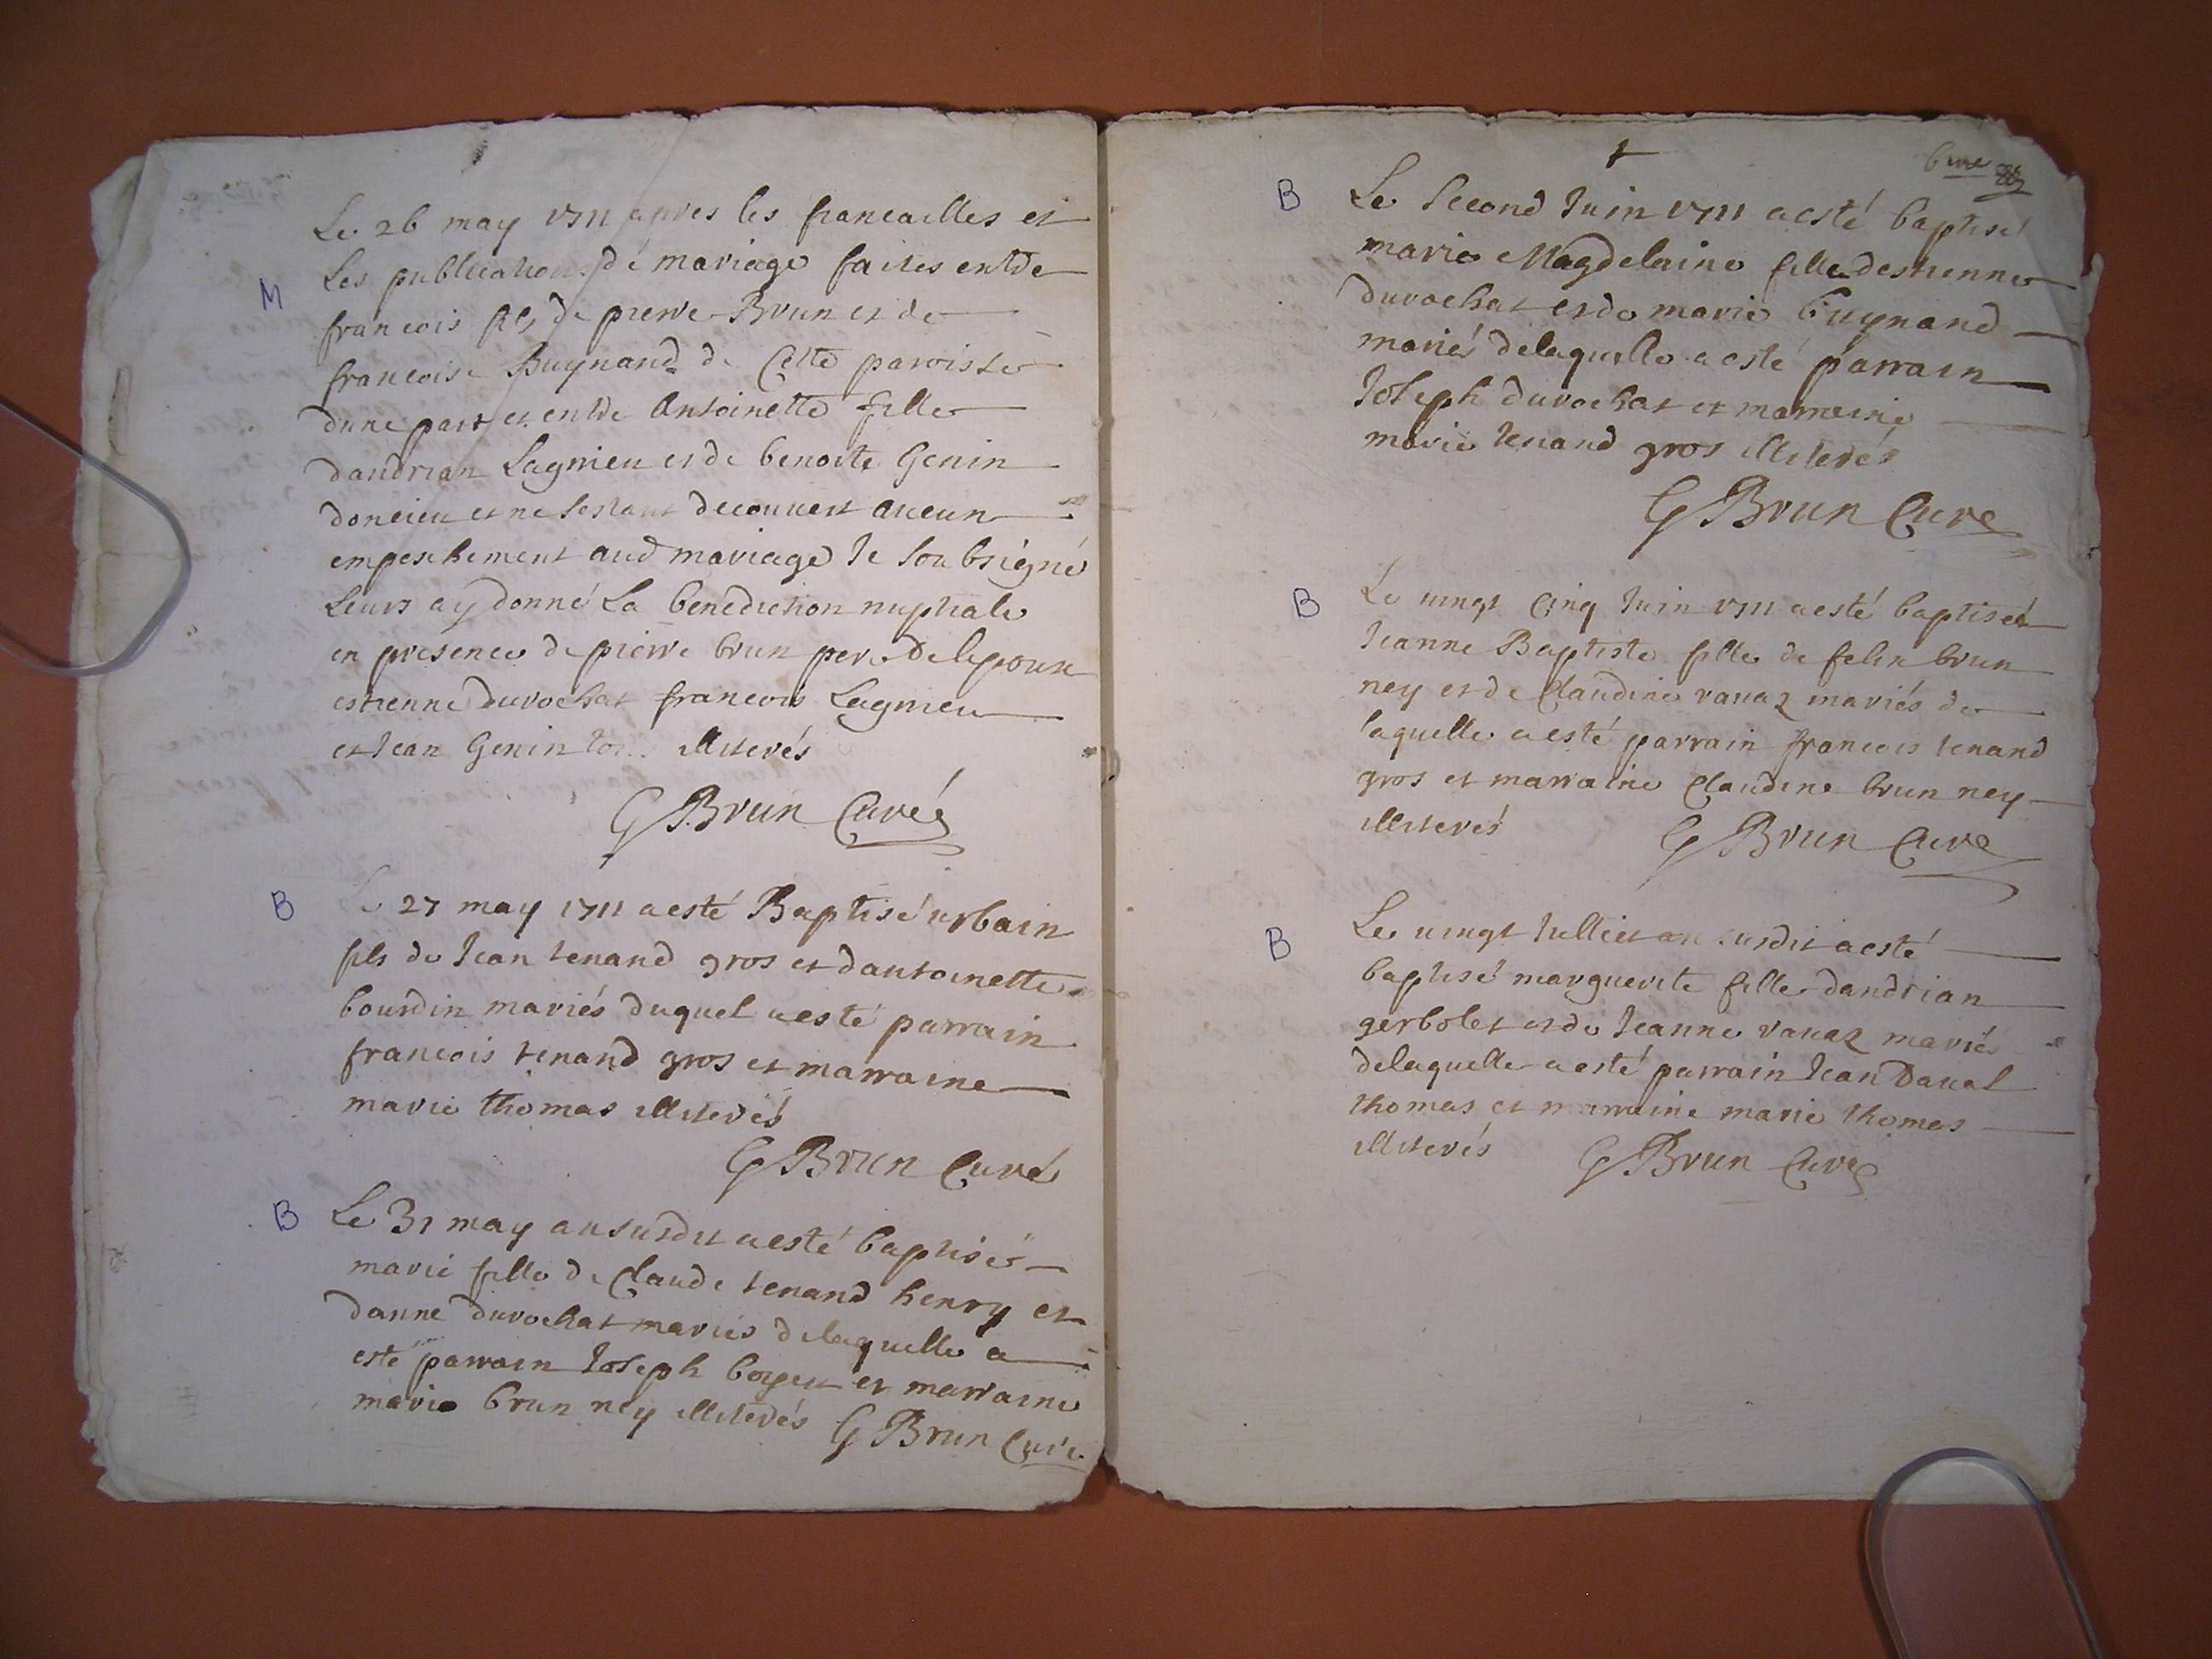 Le 26 may 1711 apres les fiancailles et
M
Les publications de mariage faites entre
francois fils de pierre Brun et de
francoise Buynand de Cette paroisse
dune part et entre Antoinette fille
dandrian Lagnieu et de benoite Genin
doncieu et ne sestant decouvert aucun
empeschement aud mariage Je soubsigné
Leurs ay donné La benediction nuptiale
en presence de pierre brun pere de lepoux
estienne durochat francois Lagnieu
et Jean Genin tous illiterés
G Brun Curé
B
Le 27 may 1711 a esté Baptisé urbain
fils de Jean tenand gros et dantoinette
bourdin mariés duquel a esté parrain
francois tenand gros et marraine
marie thomas illiterés
G Brun Curé
B
Le 31 may an susdit a esté baptisée
marie fille de Claude tenand henry et
danne durochat mariés delaquelle a
esté parrain Joseph et marraine
marie brun ney illiterés G Brun Curé
B
Le Second Juin 1711 a esté baptisé
marie Magdelaine fille destienne
durochat et de marie buynand
mariés delaquelle a esté parrain
Joseph durochat et marraine
marie tenand gros illiterés
G Brun Cure
B
Le vingt Cinq Juin 1711 a esté baptisée
Jeanne Baptiste fille de felix brun
ney et de Claudine vavaz mariés de
laquelle a esté parrain francois tenand
gros et marraine Claudine brun ney
illiterés G Brun Cure
B
Le vingt Julliet an susdit a esté
baptisé marguerite fille dandrian
gerbolet et de Jeanne vavaz mariés
delaquelle a esté parrain Jean
thomas et marraine marie thomas
illiterés G Brun Curé